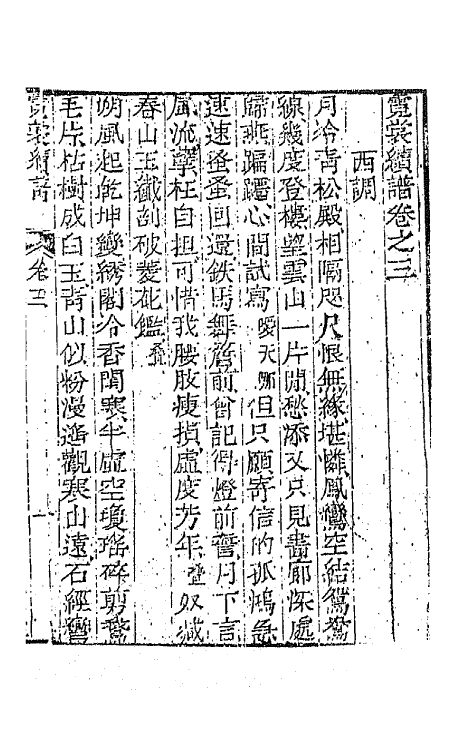 霓裳續譜卷之三
西調
月冷青松殿相隔咫尺恨無緣堪憐鳳鸞空結鴛鴦
線幾度登樓望雲山一片閒愁添又只見畫廊深處
歸燕蹁躚心閒試寫 天 但只願寄信的孤鴻急
速速逢 回還鉄馬舞簷前曾記得燈前誓月下言
風流孽枉自担可惜我腰肢瘦損虛度芳年 奴減
春山玉纖刮破菱花鑑
朔風起乾坤變綉閣冷香閨寒半虛空瓊瑤碎剪鵞
毛片枯樹成白玉青山似粉漫遙觀寒山遠石經彎
霓裳續譜 卷三 一